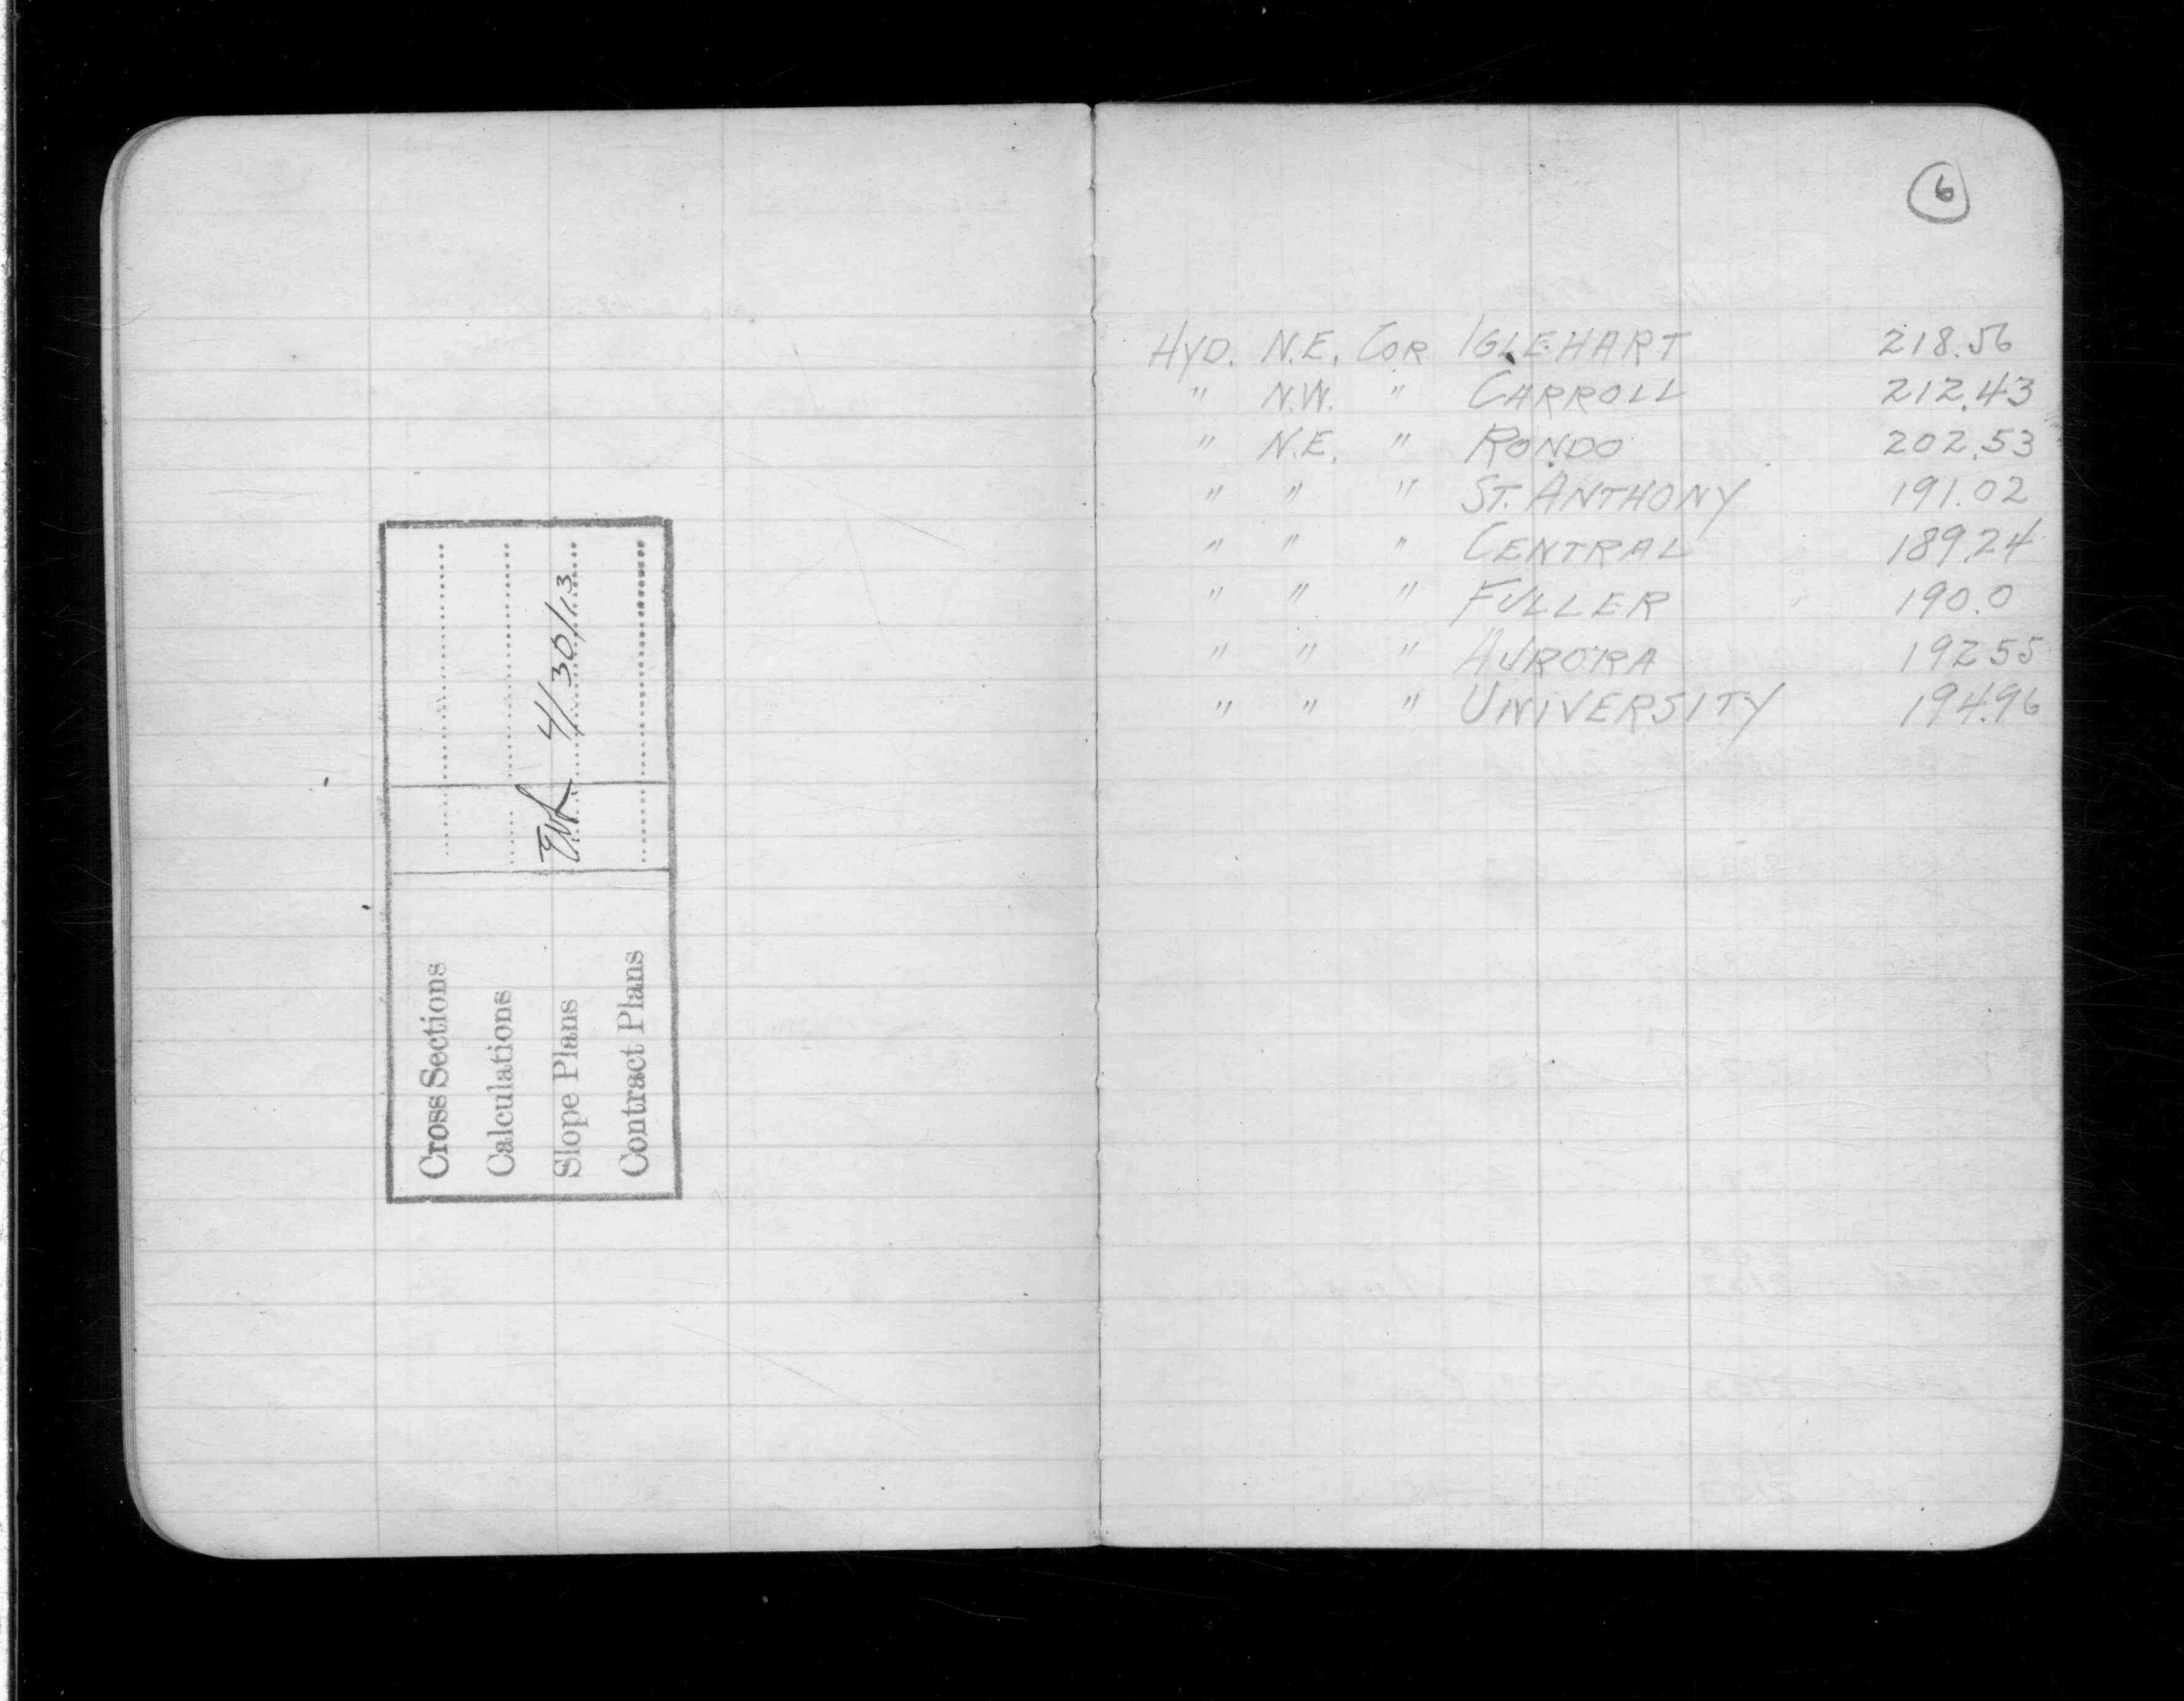 Cross Sections
Calculations
Slope Plans 4/30/13
Contract Plans
6
HYD. N.E. COR IGLEHART 218.56
" N.W. " CARROLL 212.43
" N.E. " RONDO 202.53
" " " ST. ANTHONY 191.02
" " " CENTRAL 189.24
" " " FULLER 190.0
" " " AURORA 192.55
" " " UNIVERSITY 194.96